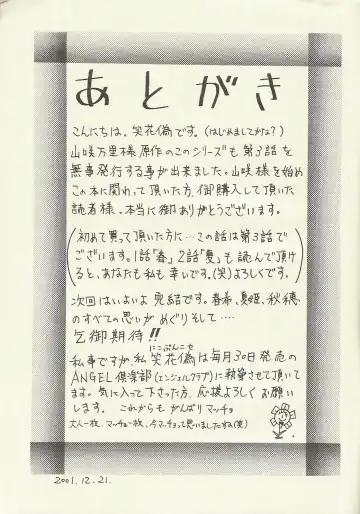 あとがき
こんにちは。笑花偽です。(はじめましてかな?)
山咲万里様原作のこのシリーズも第3話を
無事発行する事が出来ました。山咲様を始め
この本に関わって頂いた方、御購入して頂いた
読者様。本当に御ありがとうございます。
(初めて買って頂いた方に…この話は第3話で
ございます。1話「春」2話「夏」も読んで頂け
ると、あなたも私も幸いです。(笑)よろしくです。)
次回はいよいよ完結です。春希、夏姫、秋穂
のすべての思いが めぐりもして‥‥
乞御期待!!
にこぷんこせ
私事ですが、私 笑花偽は毎月30日発売の
ANGEL倶楽部(エンジェルクラブ)に執筆させて頂いて
ます。気に入って下さった方、応援よろしくお願い
します。 これからも がんばりマッチョ
大人一枚、マッチョ一枚、今マッチョって思いましたね(笑)
2001.12.21.